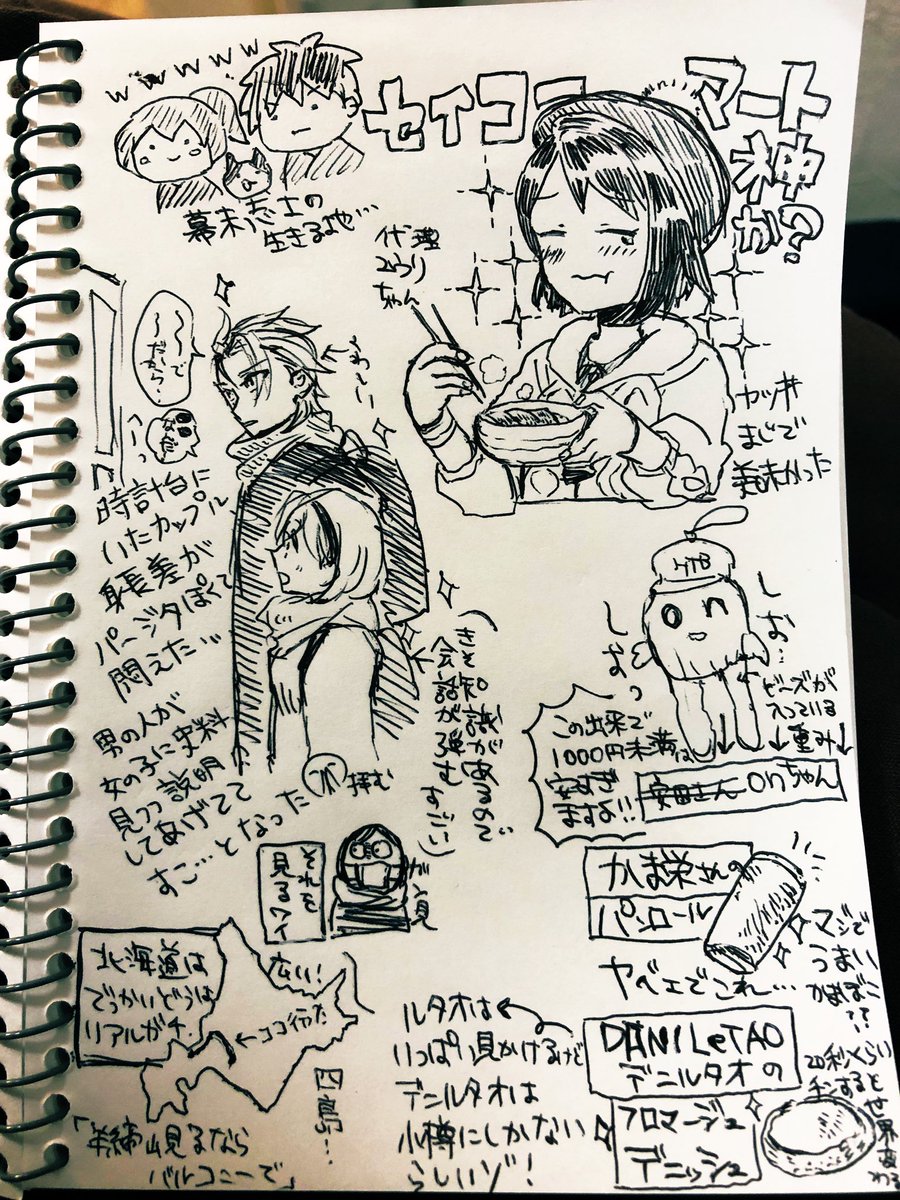 wwwwww
幕末志士の
生きる地…
セイコーマート
神さの?
代理
ユウリ
ちゃん
カツ丼
まじで
美味かった
〜〜で
〜〜だから?
わ〜
時計台に
いたカップル
身長差が
パージタぽくて
悶えた…
男の人が
女の子に史料
見つつ説明
してあげてて
すご…となった
拝む
きそ知識があるので
会話が弾む
すごい
それを
見るワイ
ガン見
HTB
on
しお…
しおっ
ビーズが
入っている
重み
この出来で
1000円未満は
安すぎ
ますよ!!
安田さん onちゃん
かま栄さんの
パンロール
ヤベェでこれ…
マジで
うまい
かまぼこ
??
北海道は
でっかいどうは
リアルガチ.
広い!
←ココ行った
四島…
ルタオは
いっぱい見かけるけど
デニルタオは
小樽にしかない
らしいゾ!
DANI LeTAO
デニルタオの
フロマージュ
デニッシュ
20秒くらい
チンすると
世界変わる
見るなら
バルコニーで」